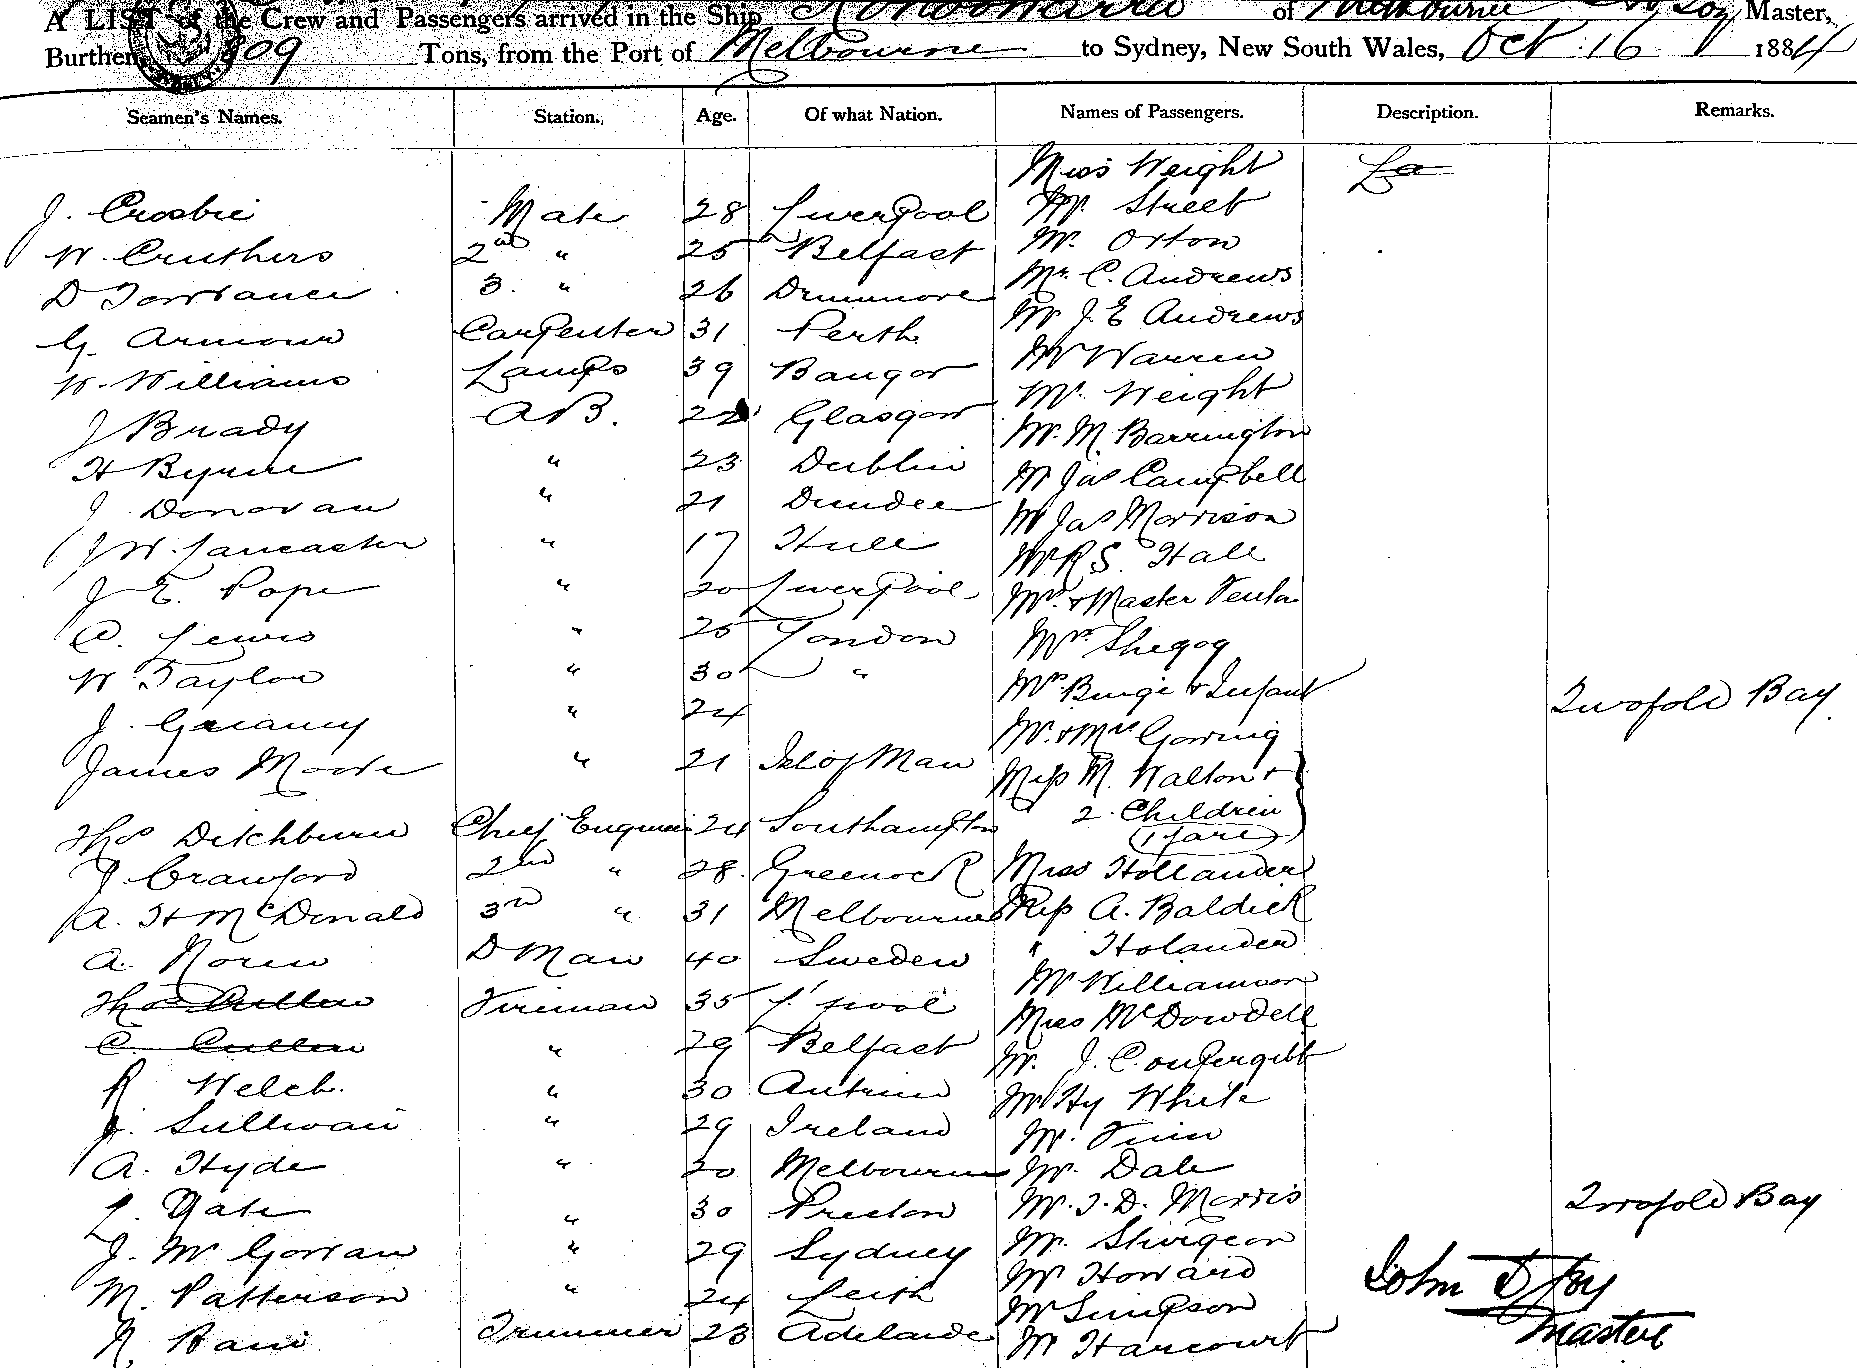 A LIST of the Crew and Passengers arrived in the Ship of Melbourne Master,
Burthen 809 Tons, from the Port of Melbourne to Sydney, New South Wales, Oct 16 1884
Seamen's Names. Station. Age. Of what Nation. Names of Passengers. Description. Remarks.
Miss Weight
J. Crosbie Mate 28 Liverpool Mr. Street
W. Cruthers 2nd " 25 Belfast Mr. Orton
D Torrance 3. " 26 Drummore Mr. C. Andrews
G. Armour Carpenter 31 Perth Mr J. E Andrews
W. Williams Lamps 39 Bangor Mr Warren
J Brady AB. 22 Glasgow Mr. Weight
H Byrne " 23 Dublin Mr. M. Barrington
J Donovan " 21 Dundee Mr Jas Campbell
J W. Lancaster " 17 Hull Mr Jas Morrison
J E. Pope " 20 Liverpool Mr R S. Hall
A. Lewis " 25 London Mrs & Master
W Taylor " 30 " Mrs Shegog
J. " 24 Mrs & Infant Twofold Bay
James Moore " 21 Isl of Man Mr. & Mrs Gowing
Miss M. Walton &
Thos Ditchburn Chief Engineer 24 Southampton 2 Children
(1 fare)
J. Crawford 2nd " 28. Greenock Miss Hollander
A. H McDonald 3rd " 31 Melbourne Miss A. Baldick
A. Noren D Man 40 Sweden " Holander
Thos Cullen Fireman 35 L'pool Mr Williamson
C. Cullen " 29 Belfast Miss McDowdell
R Welch. " 30 Antrim Mr. J.
J. Sullivan " 29 Ireland Mr Hy White
A. Hyde " 20 Melbourne Mr.
Mr. Dale
L. Yate " 30 Preston Mr. J. D. Morris Twofold Bay
J. McGowan " 29 Sydney Mr. Sturgeon
M. Patterson " 24 Leith Mr Howard John
Mr Simpson Master
Trimmer 23 Adelaide Mr Harcourt